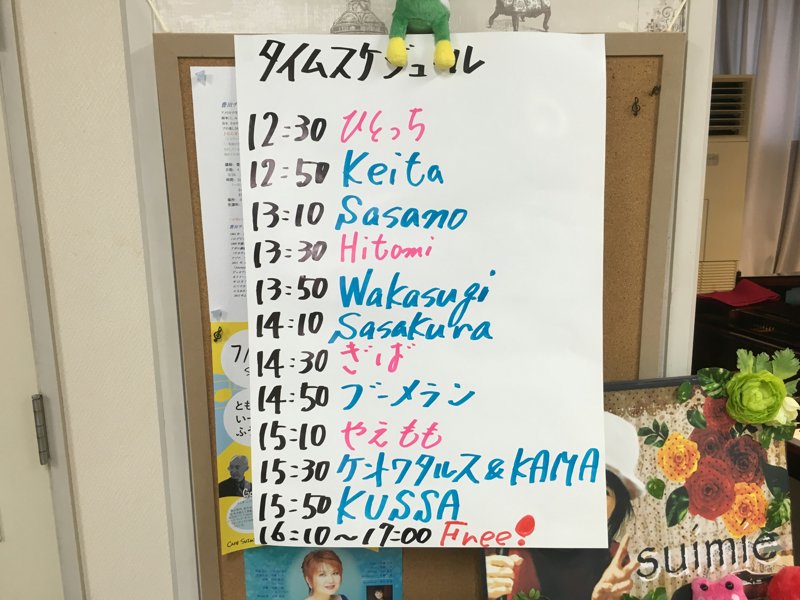 タイムスケジュール
12:30 ひとっち
12:50 Keita
13:10 Sasano
13:30 Hitomi
13:50 Wakasugi
14:10 Sasakura
14:30 ぎば
14:50 ブーメラン
15:10 やえもも
15:30 ケントワタルス&KAMA
15:50 KUSSA
16:10~17:00 Free!
suimie